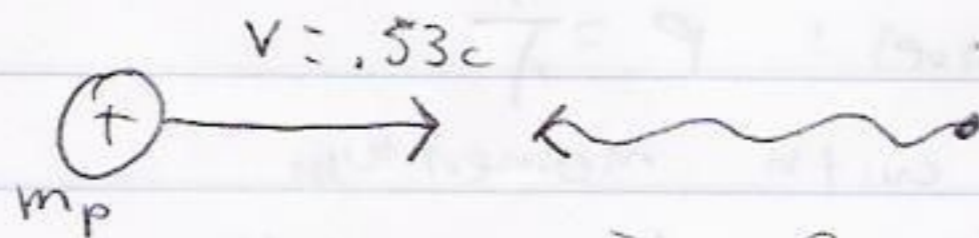 V = .53c
+
mp